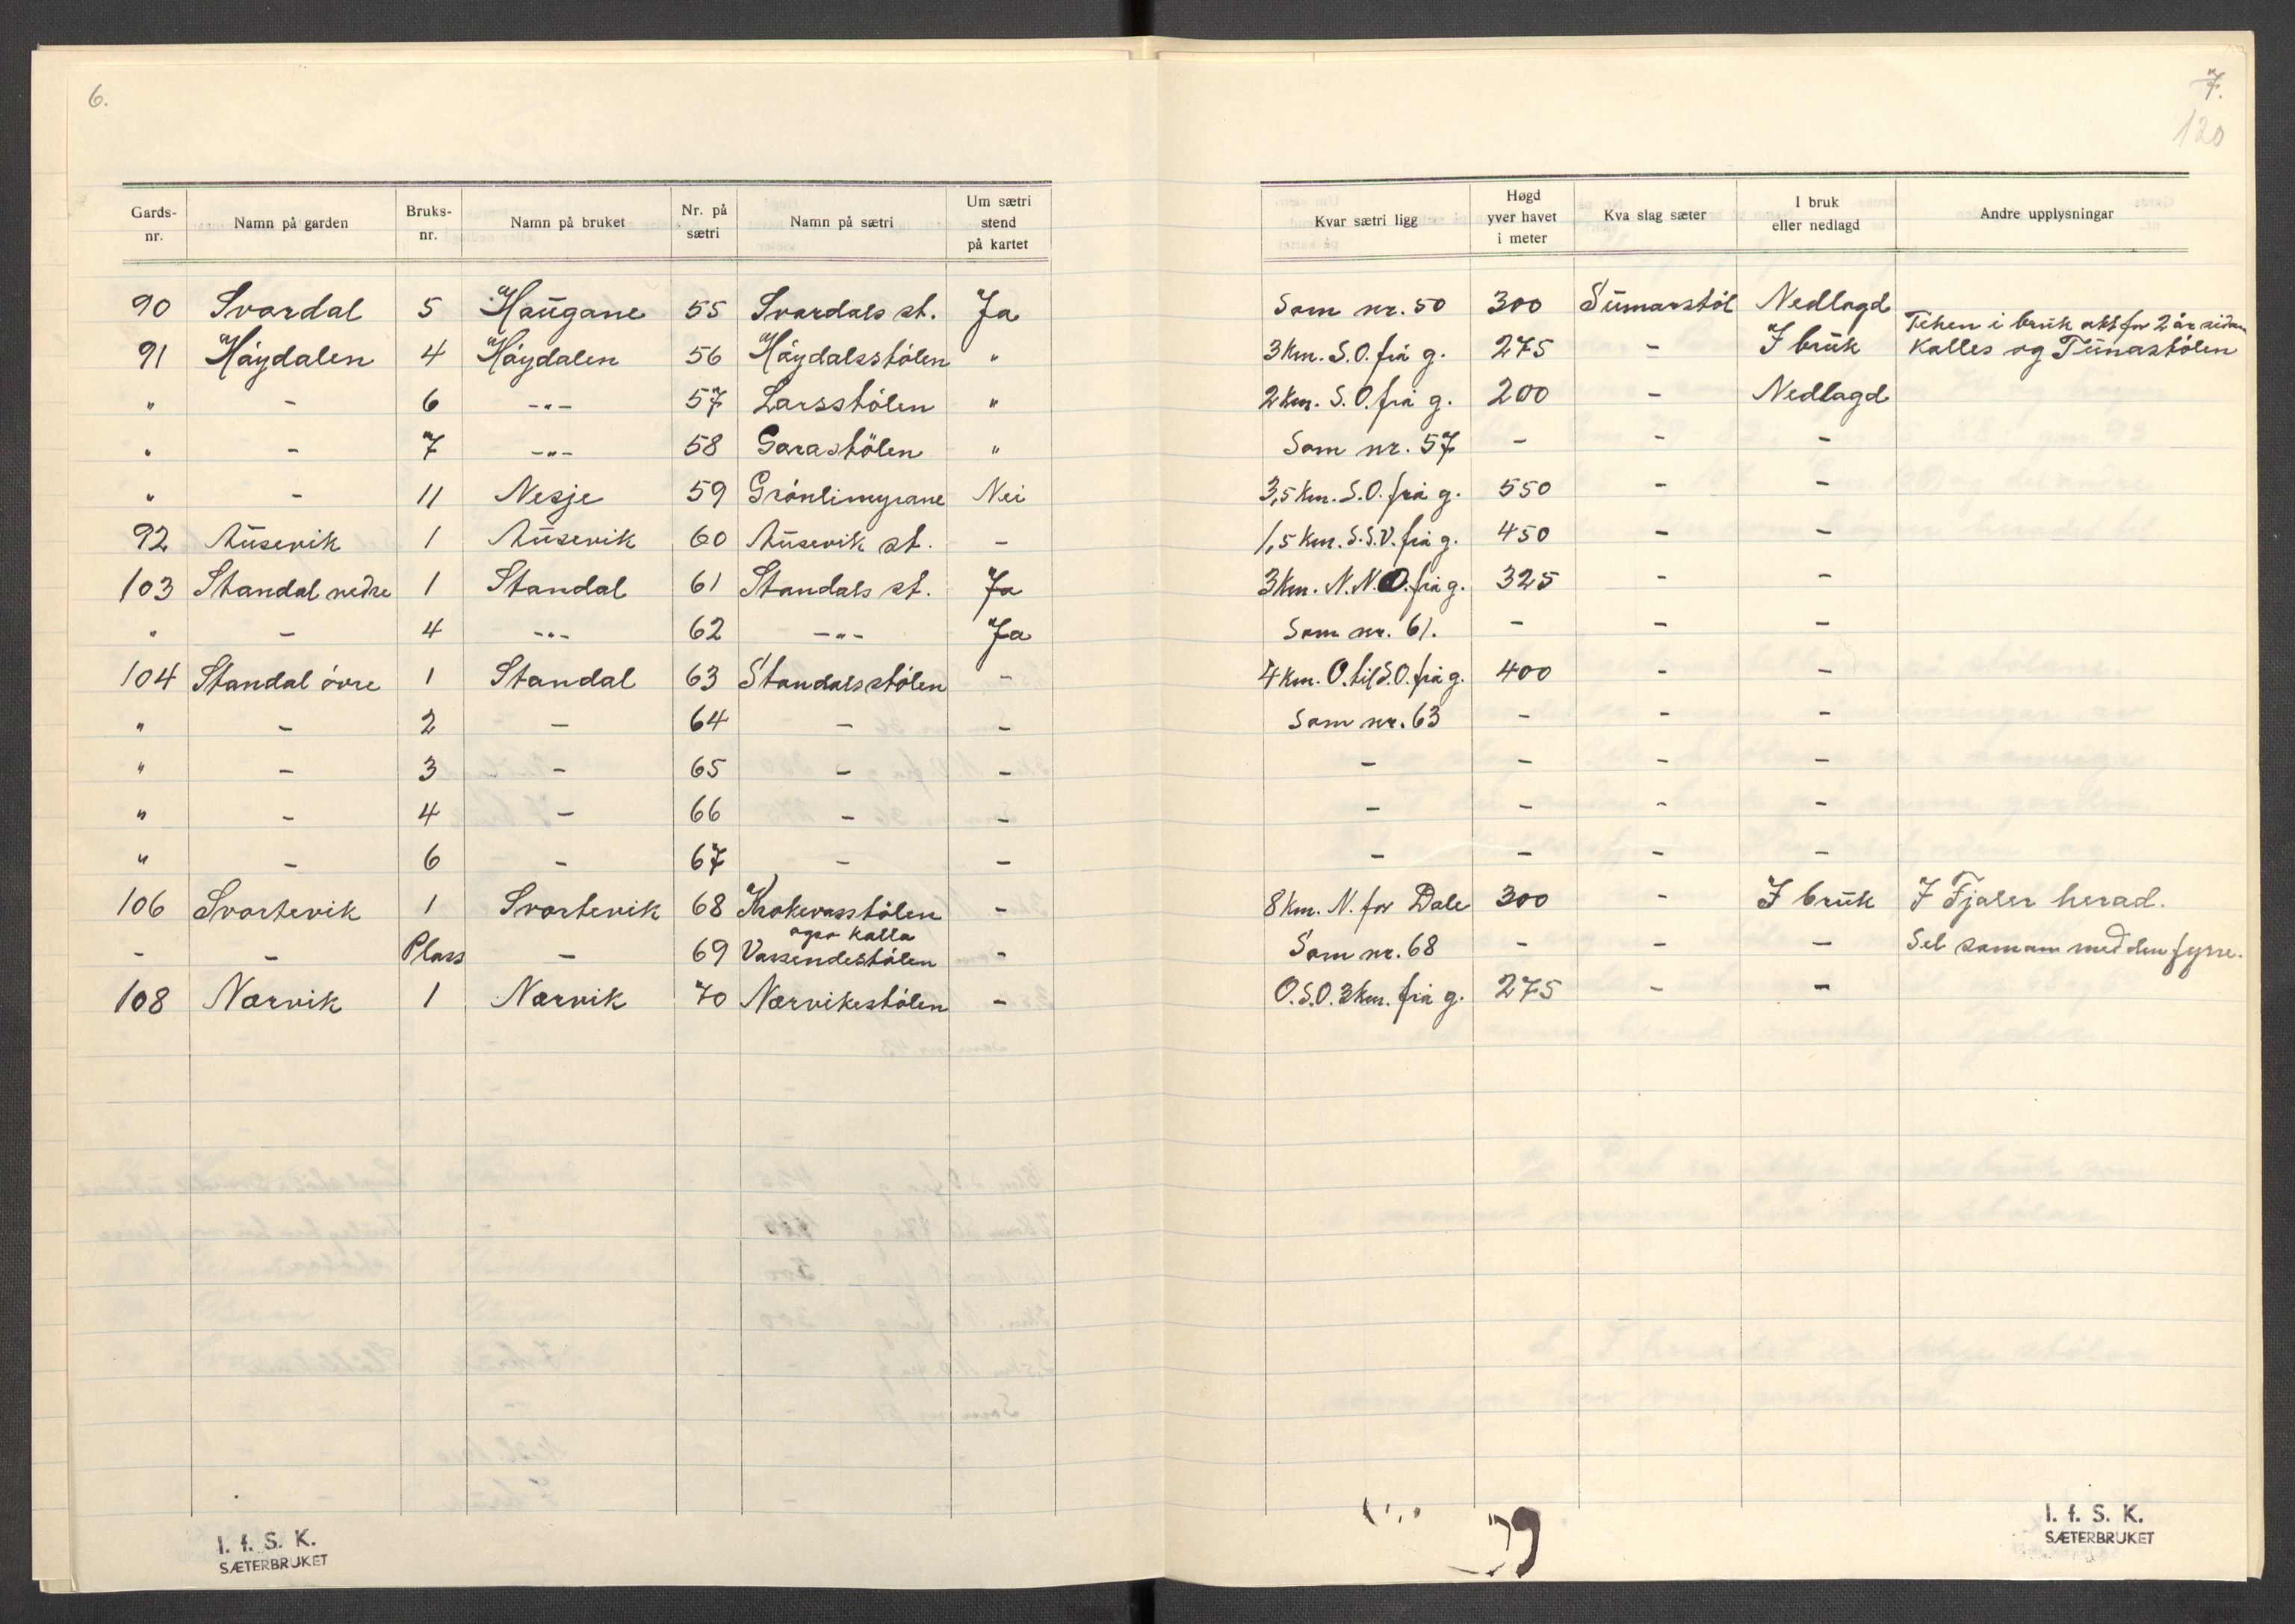 6.
Gards-nr. Namn på garden Bruks-nr. Namn på bruket Nr. på sætri Namn på sætri Um sætri stend på kartet
90 Svardal 5 Haugane 55 Svardals st. Ja
91 Höydalen 4 Höydalen 56 Höydalsstölen "
" - 6 -"- 57 Larsstölen "
" - 7 -"- 58 Garastölen "
" - 11 Nesje 59 Grönlimyrane Nei
92 Ausevik 1 Ausevik 60 Ausevik st. -
103 Standal nedre 1 Standal 61 Standals st. Ja
" - 4 -"- 62 -"- Ja
104 Standal övre 1 Standal 63 Standalsstölen -
" - 2 - 64 - -
" - 3 - 65 - -
" - 4 - 66 - -
" - 6 - 67 - -
106 Svortevik 1 Svortevik 68 Krokevasstölen -
ogso kalla
- - Plass - 69 Vassendestölen -
108 Nærvik 1 Nærvik 70 Nærvikestölen -
I. f. S. K.
SÆTERBRUKET
7.
120
Kvar sætri ligg Høgd yver havet i meter Kva slag sæter I bruk eller nedlagd Andre upplysningar
Som nr. 50 300 Sumarstöl Nedlagd
Teken i bruk att for 2 år sidan
3 km. S.O. frå g. 275 - I bruk Kalles og Tunastölen
2 km. S.O. frå g. 200 - Nedlagd
Som nr. 57 - - -
3,5 km. S.O. frå g. 550 - -
1,5 km. S.S.V. frå g. 450 - -
3 km. N.N.O. frå g. 325 - -
Som nr. 61. - - -
4 km. O. til S.O. frå g. 400 - -
Som nr. 63 - - -
- - - -
- - - -
- - - -
8 km. N. for Dale 300 - I bruk I Fjaler herad.
Som nr. 68 - - - Sel saman med den fyrre.
O.S.O. 3 km. frå g. 275 - -
I. f. S. K.
SÆTERBRUKET